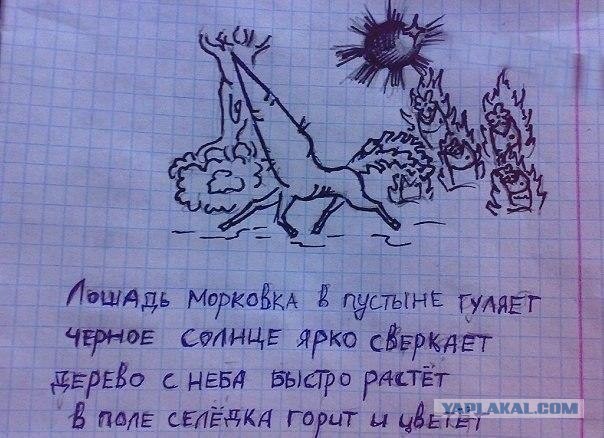 Лошадь морковка в пустыне гуляет
черное солнце ярко сверкает
дерево с неба быстро растёт
в поле селёдка горит и цветёт
YAPLAKAL.COM